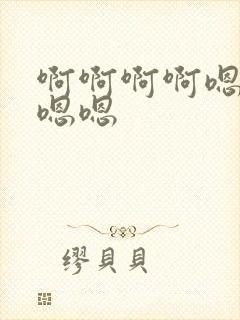 啊啊啊啊嗯
嗯嗯
缪貝貝